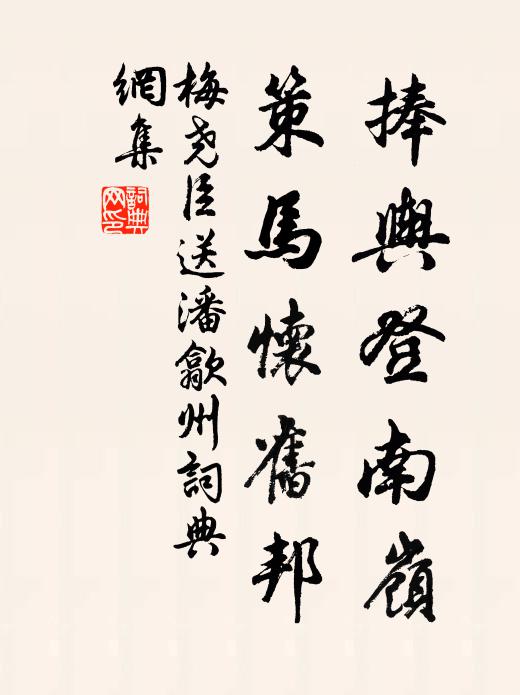 捧輿登南嶺
策馬懷舊邦
梅尧臣送潘歙州詞典
網集
詞典網印